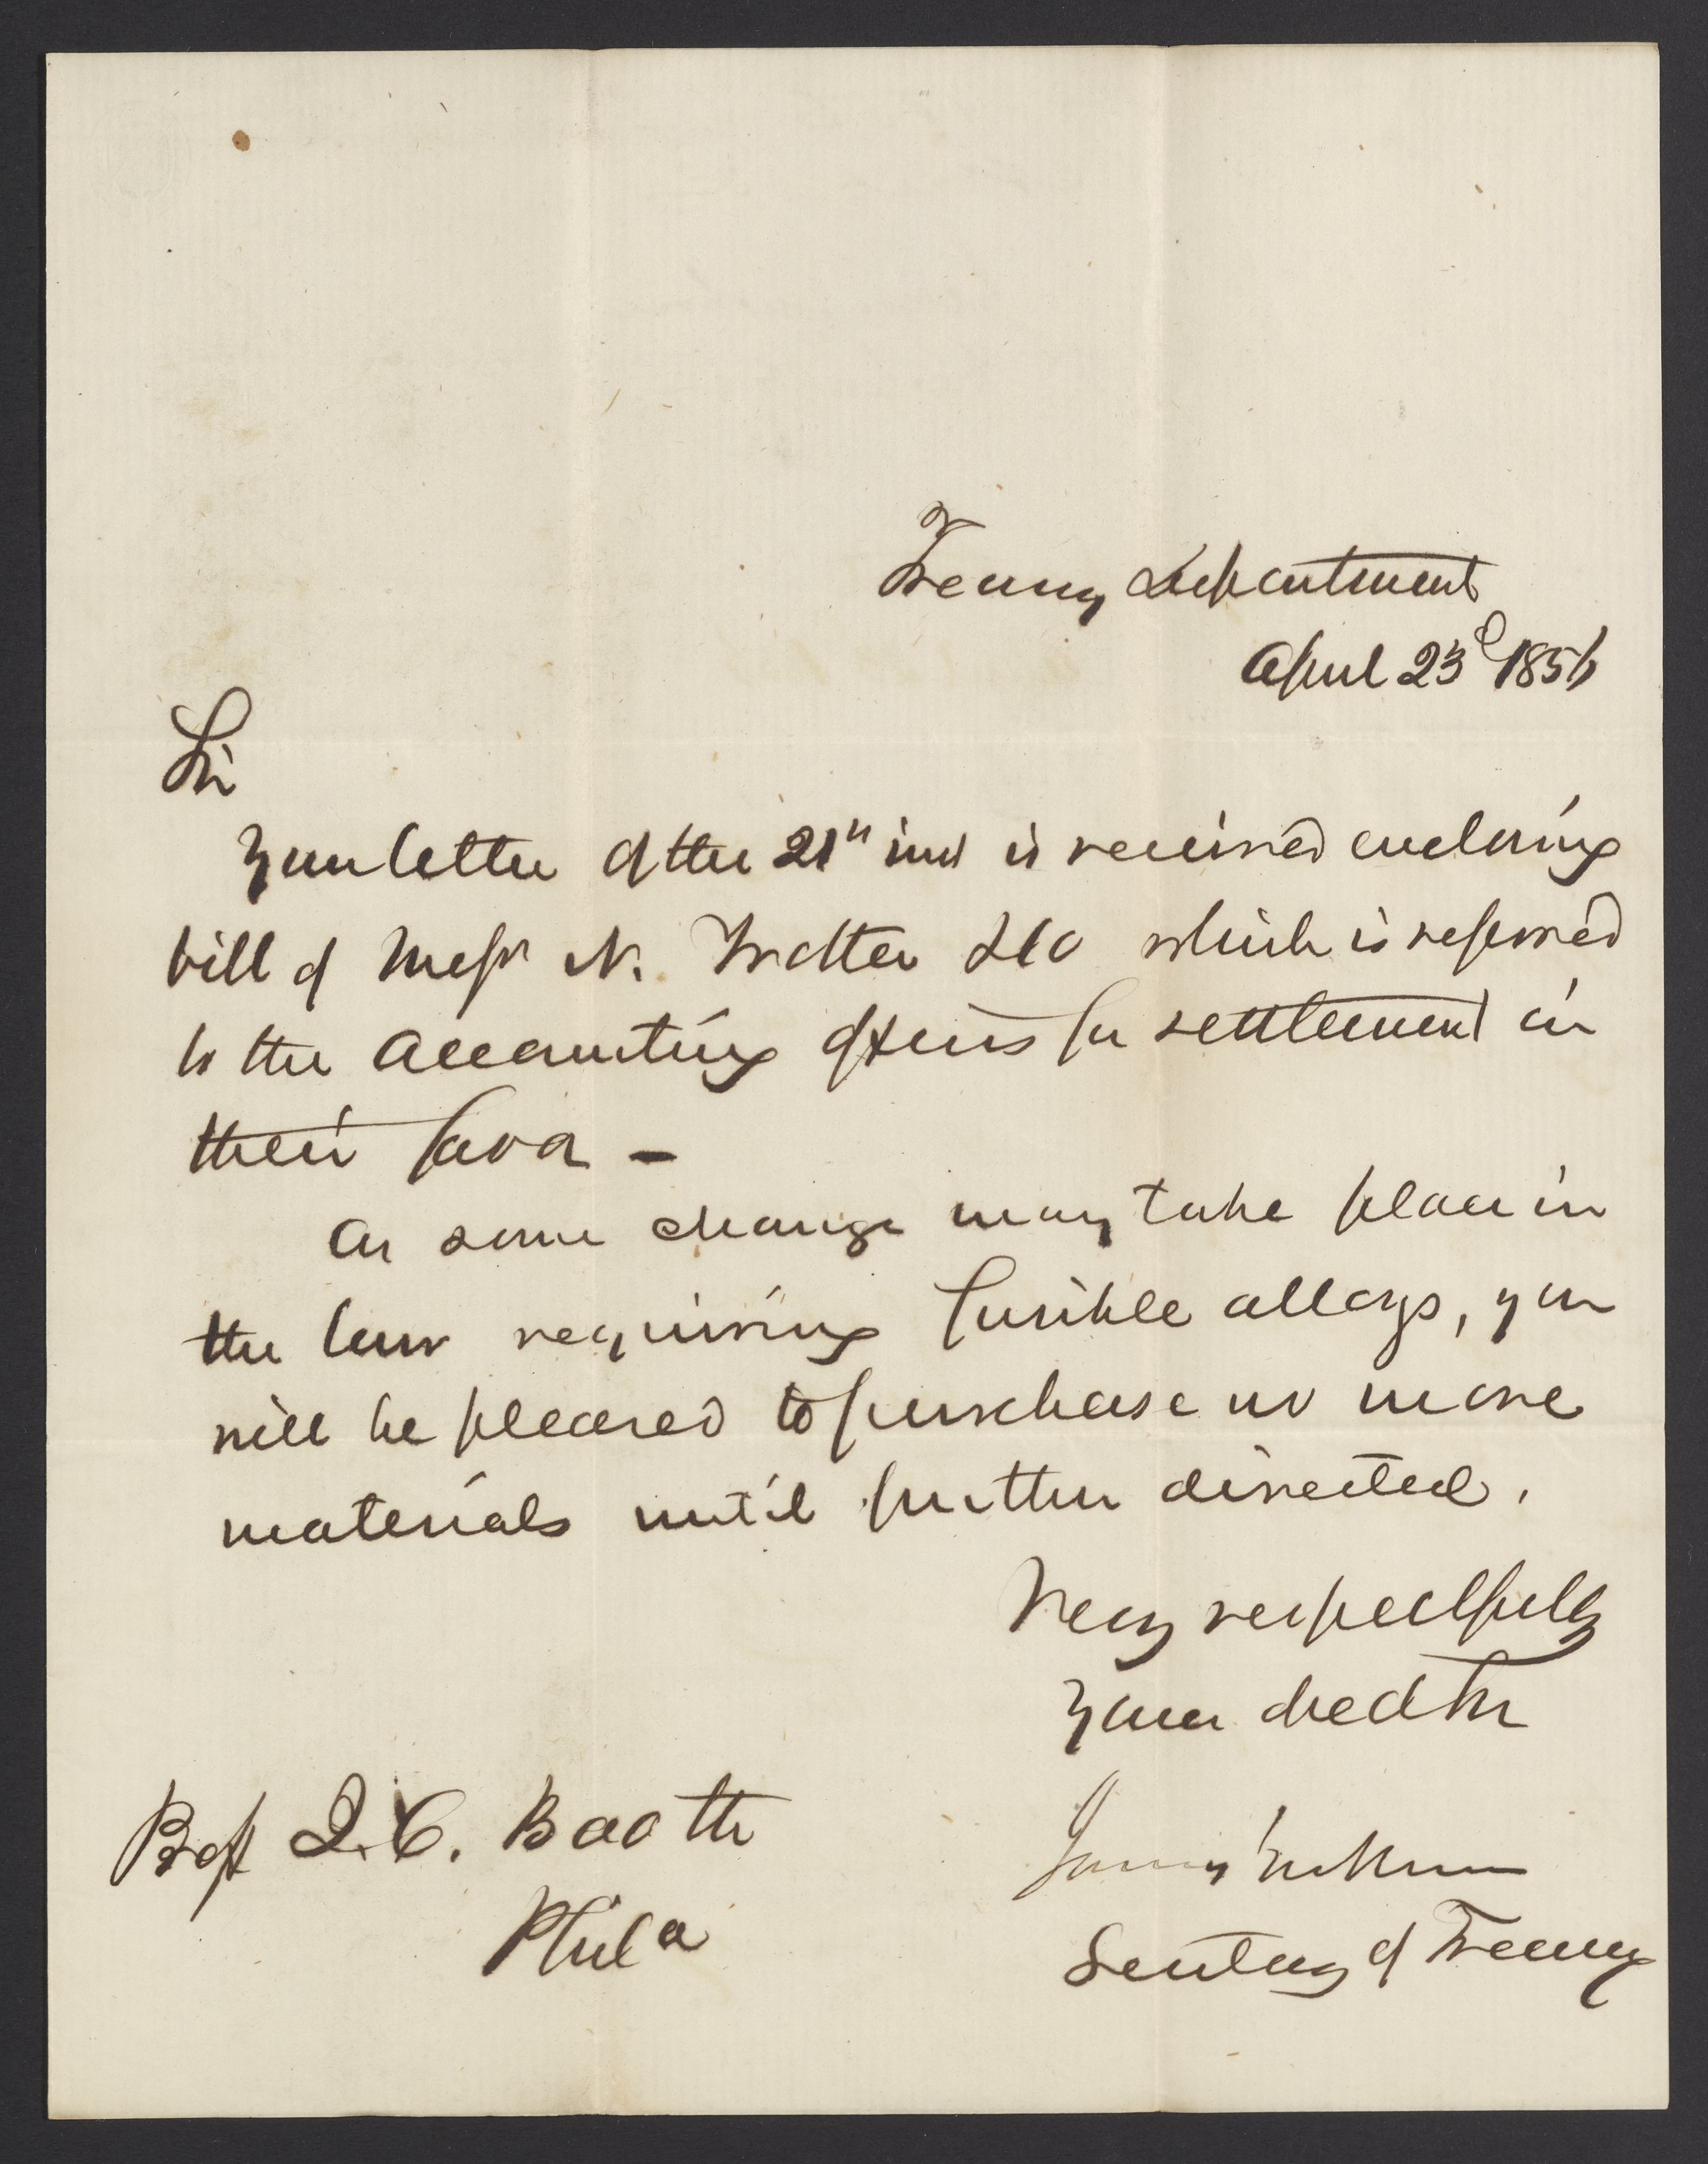 Treasury Department
April 23d 1856
Sir
Your letter of the 21st inst is received enclosing
bill of Messrs N. Trotter & Co which is referred
to the Accounting officers for settlement in
their favor -
As some change may take place in
the law requiring fusible alloys, you
will be pleased to purchase no more
materials until further directed.
Very respectfully
Your obedt Sr
James Guthrie
Secretary of Treasury
Prof J. C. Booth
Phila